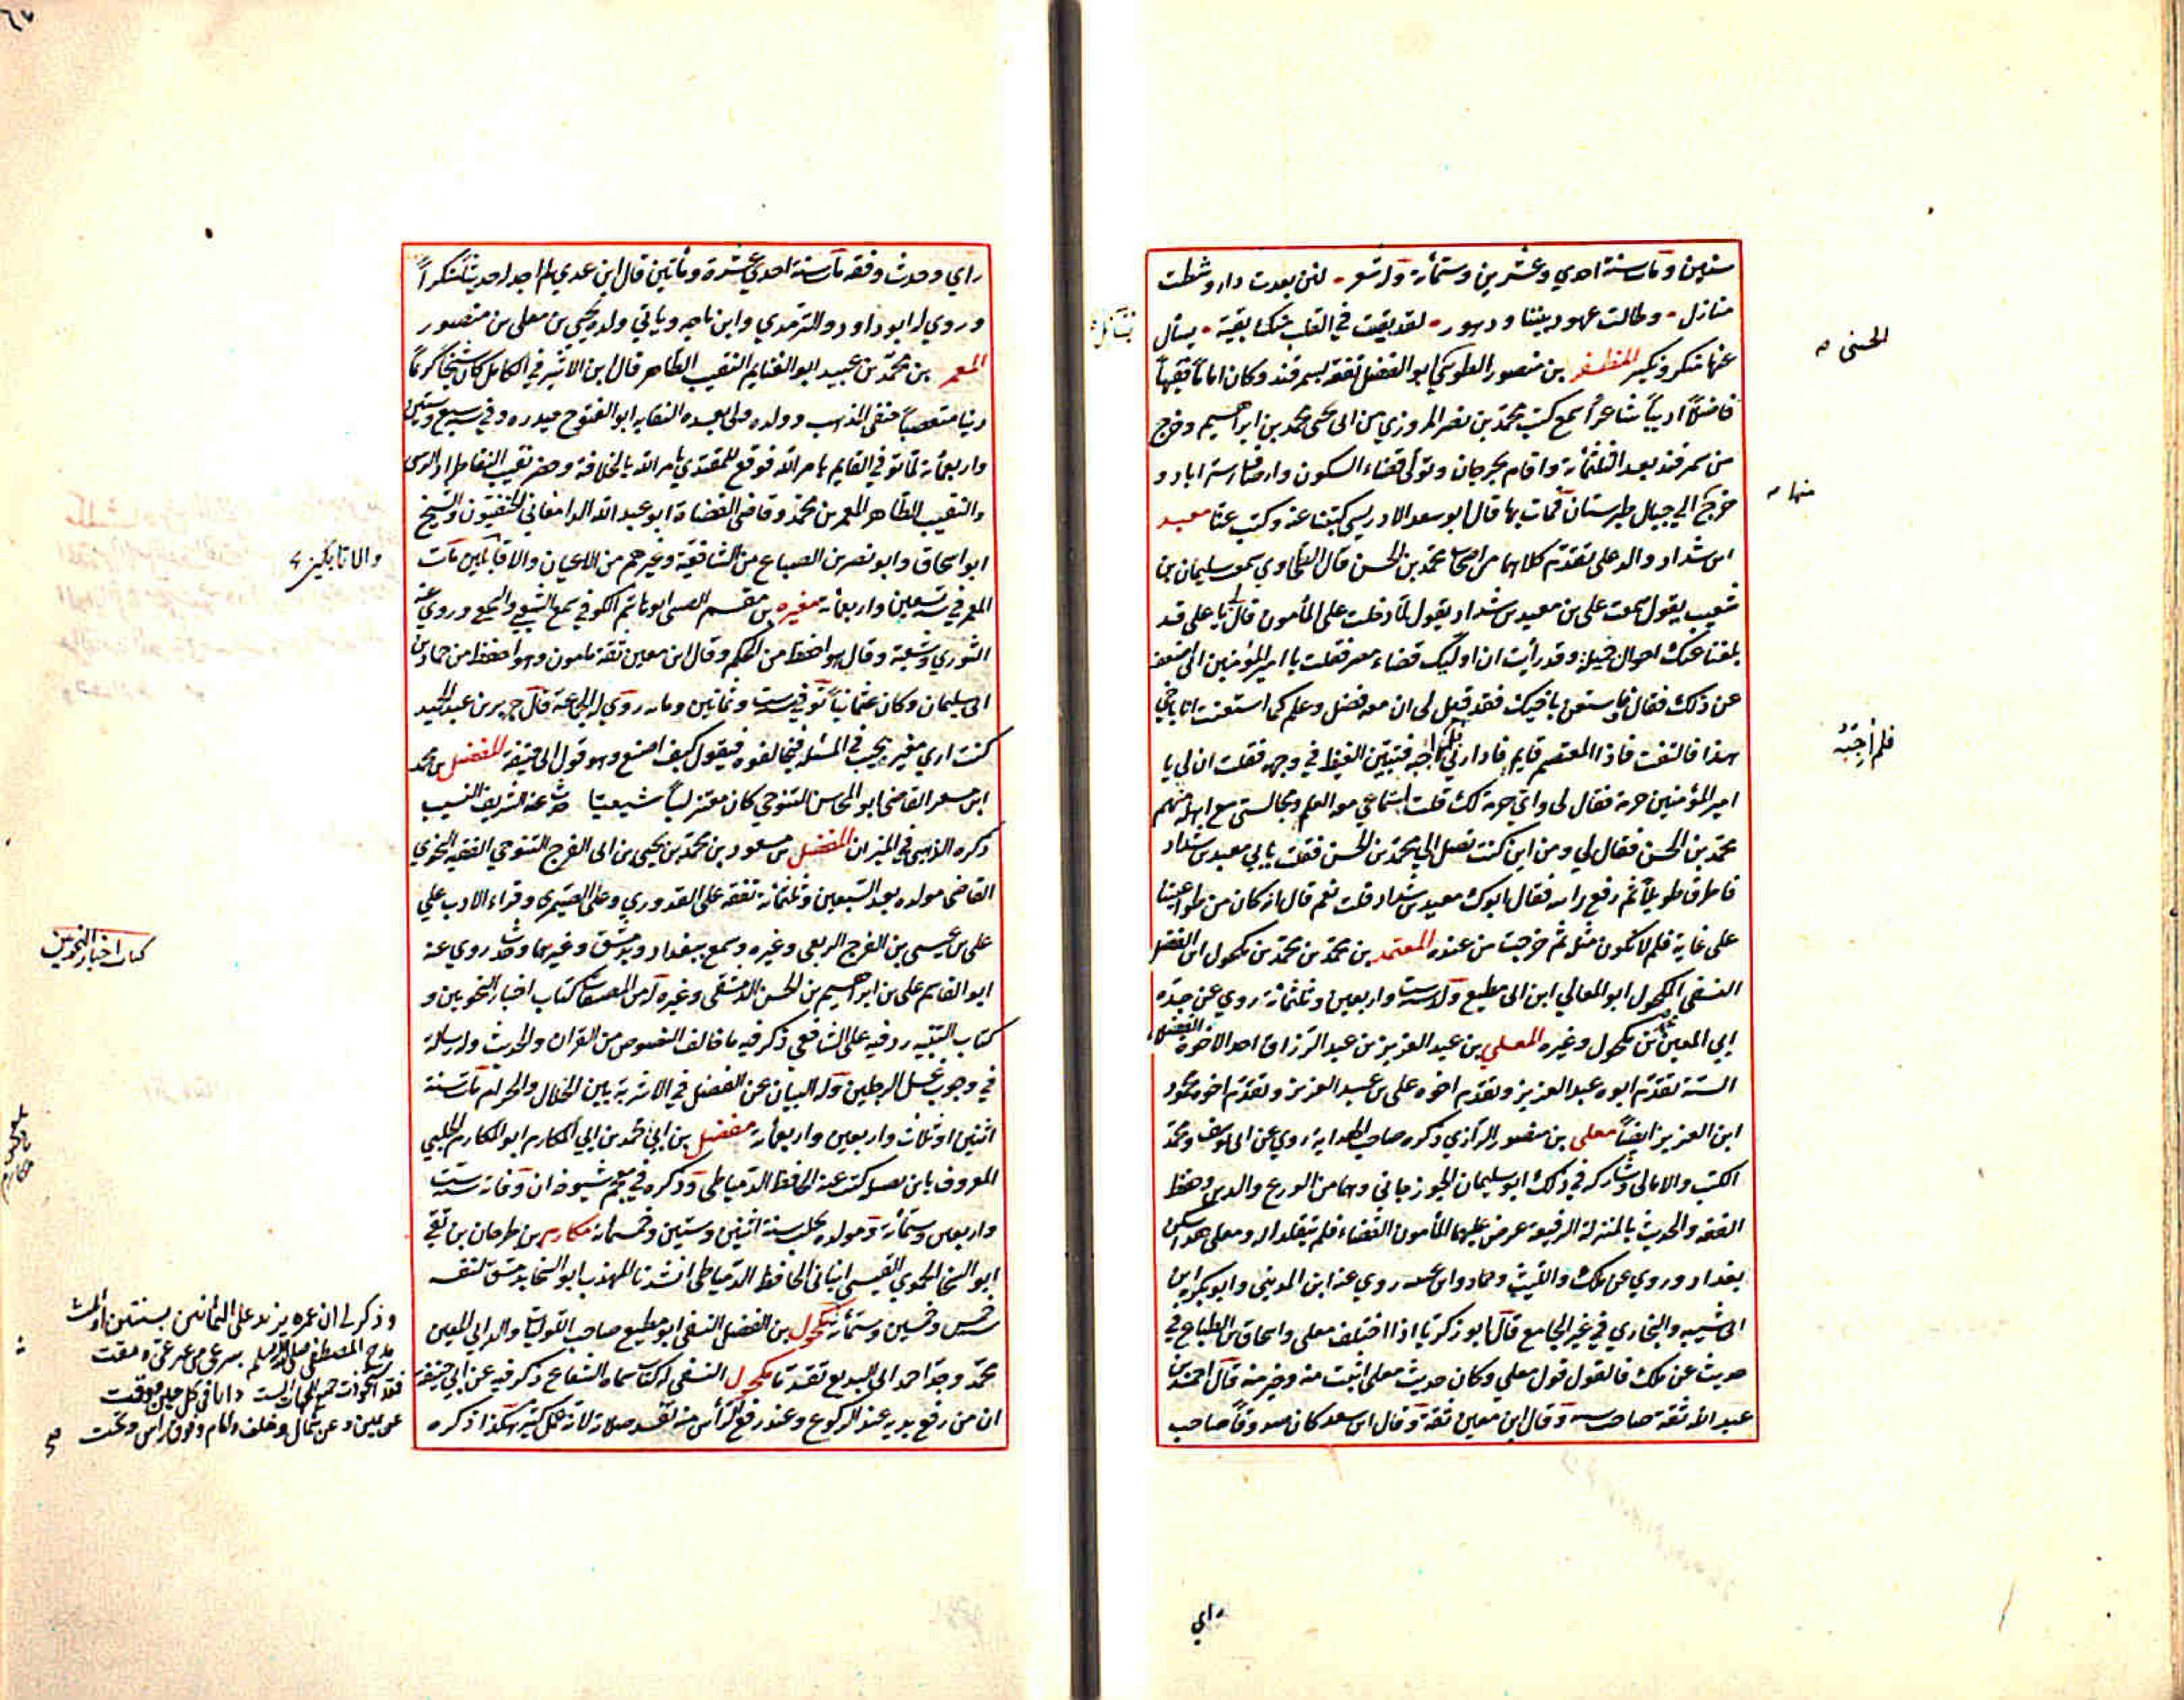 سنين ومات سنة احدي وعشرين وستمأئة وله شعر لئن بعدت دار وشطت
منازل وطالت عهود بيننا ودهور لقد بقيت في القلب منك بقية يسأل
عنها منكر ونكير المظفر بن منصور الطوسكي ابو الفضل تفقه بسمرقند وكان اماماً فقيهاً
فاضلاً اديباً شاعراً سمع كتب محمد بن نصر المروزي من ابي يحيى محمد بن ابراهيم وخرج
من سمرقند بعد الثلثمائة واقام بجرجان وتولى قضاء السكون وارض استراباد و
خرج الي جبال طبرستان فمات بها قال ابو سعد الادريسي كتبنا عنه وكتب عنا معبد
ابن شداد والد علي تقدم كلاهما من اصحاب محمد بن الحسن قال الطحاوي سمعت سليمان بن
شعيب يقول سمعت علي بن معبد بن شداد يقول لما دخلت على المأمون قال لي يا علي قد
بلغنا عنك احوال جميلة وقد رأيت ان اوليك قضاء مصر فقلت يا امير المؤمنين اني اضعف
عن ذلك فقال
هذا فالتفت فاذا المعتصم قايم فادارني فلم اجبه فتبين الغيظ في وجهه فقلت ان لي يا
امير المؤمنين حرمة فقال لي واي حرمة لك قلت استماعي معه العلم ومجالستي مع اهله عند
محمد بن الحسن فقال لي ومن اين كنت تصل الي محمد بن الحسن فقلت يا ابي معبد بن شداد
فاطرق طويلاً ثم رفع رأسه فقال ابوك معبد بن شداد قلت نعم قال انه كان من طواعيتنا
على غاية فلم لا تكون مثله ثم خرجت من عنده المعتمد بن محمد بن محمد بن مكحول ابن الفضل
النسفي المكحولي ابو المعالي ابن ابي مطيع ولد سنة ست واربعين وثلثمائة روي عن جده
ابي المعين محمد بن مكحول وغيره المعلي بن عبد العزيز بن عبد الرزاق احد الاخوة الفضلاء
الستة تقدم ابوه عبد العزيز وتقدم اخوه علي بن عبد العزيز وتقدم اخوه محمود
ابن العزيز ايضاً معلي بن منصور الرازي ذكره صاحب الهداية روي عن ابي يوسف ومحمد
الكتب والامالي وشاركه في ذلك ابو سليمان الجوزجاني وهما من الورع والدين وحفظ
الفقه والحديث بالمنزلة الرفيعة عرض عليهما المأمون القضاء فلم يتقلدا له ومعلي هذا سكن
بغداد وروي عن ملك والليث وحماد وابن عيينه روي عنه ابن المديني وابو بكر ابن
ابي شيبه والبخاري في غير الجامع قال ابو زكريا اذا اختلف معلي واسحاق بن الطباع في
حديث عن ملك فالقول قول معلي وكان حديث معلى اثبت منه وخير منه قال احمد بن
عبد الله ثقة صاحب سنة وقال ابن معين ثقة وقال ابن سعد كان صدوقاً صاحب
راي
الحسن
منها
فلم اجبه
يسأل
راي وحديث وفقه مات سنة احدي عشرة ومأتين قال ابن عدي لم اجد له حديثاً منكراً
وروي له ابو داود والترمذي وابن ماجه وياتي ولده يحيي بن معلى بن منصور
المعمر بن محمد بن عبيد ابو الغنايم النقيب الطاهر قال ابن الاثير في الكامل كان شيخاً كريماً
دينا متعصباً حنفي المذهب وولده ولي بعده النقابة ابو الفتوح حيدره وفي سبع وستين
واربعمأئة لما توفي القايم بامر الله فوقع للمقتدي بامر الله بالخلافة وحضر نقيب النقباء طراد الزينبي
والنقيب الطاهر المعمر بن محمد وقاضي القضاة ابو عبد الله الدامغاني الحنفيون والشيخ
ابو اسحاق وابو نصر بن الصباغ من الشافعية وغيرهم من الاعيان والاماثل مات
المعمر في سنة تسعين واربعمأئة مغيره بن مقسم الضبي ابو هاشم الكوفي سمع الشعبي والنخعي وروي عنه
الثوري وشعبة وقال هو احفظ من الحكم وقال ابن معين ثقة مامون وهو احفظ من حماد بن
ابي سليمان وكان عثمانياً توفي سنة ست وثمانين ومائه روي له الجماعة قال جرير بن عبد الحميد
كنت اري مغيره يجيب في المسئله فيخالفوه فيقول كيف اصنع وهو قول ابي حنيفة المفضل بن محمد
ابن مسعر القاضي ابو المحاسن التنوخي كان معتزلياً شيعيّا حدث عنه الشريف النسيب
ذكره الذهبي في الميزان المفضل بن مسعود بن محمد بن يحيى بن ابي الفرج التنوخي الفقيه النحوي
القاضي مولده بعد التسعين وثلثمائة تفقه على القدوري وعلى الصيمري وقراء الادب علي
علي بن عيسى بن الفرج الربعي وغيره وسمع ببغداد وبدمشق وغيرهما وحدث روي عنه
ابو القاسم علي بن ابراهيم بن الحسن الدمشقي وغيره له من المصنفات كتاب اخبار النحويين و
كتاب التنبيه رد فيه على الشافعي ذكر فيه ما خالف النصوص من القران والحديث وله رسالة
في وجوب غسل الرجلين وله البيان عن الفضل في الاشربة بين الحلال والحرام مات سنة
اثنتين او ثلاث واربعين واربعمأئة مفضل بن ابي محمد بن ابي المكارم ابو المكارم الحلبي
المعروف بابن بصير كتب عنه الحافظ الدمياطي وذكره في معجم شيوخه ان وفاته سنة ست
واربعين وستمأئة ومولده بحلب سنة اثنتين وستين وخمسمأئة مكارم بن طرحان بن تقي
ابو السخا الحموي القيسي انباني الحافظ الدمياطي انشدنا المهذب ابو السخا بدمشق لنفسه
سنة خمس وخمسين وستمأئة مكحول بن الفضل النسفي ابو مطيع صاحب اللولئيات والد ابي المعين
محمد وجد احمد ابي البديع تقدما مكحول النسفي له كتاب سماه الشعاع ذكر فيه عن ابي حنيفة
ان من رفع يديه عند الركوع وعند رفع الرأس منه تفسد صلاته لانه عمل كثير هكذا ذكره
والاتابكين
كتاب اخبار النحويين
وذكر لي ان عمره يزيد على الثمانين بسنتين او ثلث
عن يمين وعن شمال وخلف وامام وفوق راس وتحت
صح